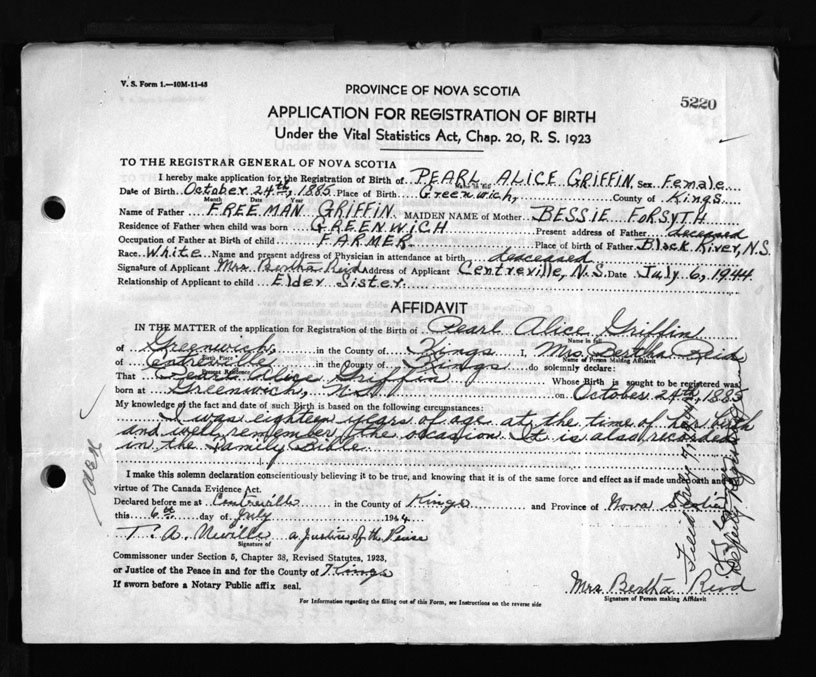 V. S. Form 1.—10M-11-43
PROVINCE OF NOVA SCOTIA
5220
APPLICATION FOR REGISTRATION OF BIRTH
Under the Vital Statistics Act, Chap. 20, R. S. 1923
TO THE REGISTRAR GENERAL OF NOVA SCOTIA
I hereby make application for the Registration of Birth of PEARL ALICE GRIFFIN Sex Female
Name in full
Date of Birth October 24th, 1885 Place of Birth Greenwich, County of Kings
Month Date Year
Name of Father FREEMAN GRIFFIN MAIDEN NAME of Mother BESSIE FORSYTH
Residence of Father when child was born GREENWICH Present address of Father deceased
Occupation of Father at Birth of child FARMER Place of birth of Father Black River, N.S.
Race White Name and present address of Physician in attendance at birth deaceased
Signature of Applicant Mrs Bertha Reid Address of Applicant Centreville, N.S. Date July 6, 1944
Relationship of Applicant to child Elder Sister
AFFIDAVIT
IN THE MATTER of the application for Registration of the Birth of Pearl Alice Griffin
Name in full
of Greenwich, in the County of Kings I, Mrs. Bertha Reid
Birth Place Name of Person Making Affidavit
of Centreville in the County of Kings do solemnly declare:
Present Residence
That Pearl Alice Griffin Whose Birth is sought to be registered was
born at Greenwich, N.S. on October 24th, 1885
My knowledge of the fact and date of such Birth is based on the following circumstances:
I was eighteen years of age at the time of her birth
and well remember the occasion. It is also recorded
in the Family Bible.
I make this solemn declaration conscientiously believing it to be true, and knowing that it is of the same force and effect as if made under oath and
virtue of The Canada Evidence Act.
Declared before me at Centreville in the County of Kings and Province of Nova Scotia
this 6th day of July 1944
T. A. Neville a Justice of the Peace
Signature of
Commissioner under Section 5, Chapter 38, Revised Statutes, 1923,
or Justice of the Peace in and for the County of Kings
If sworn before a Notary Public affix seal.
Mrs Bertha Reid
Signature of Person making Affidavit
For Information regarding the filling out of this Form, see Instructions on the reverse side
Filed July 7, 1944
Deputy Registrar General